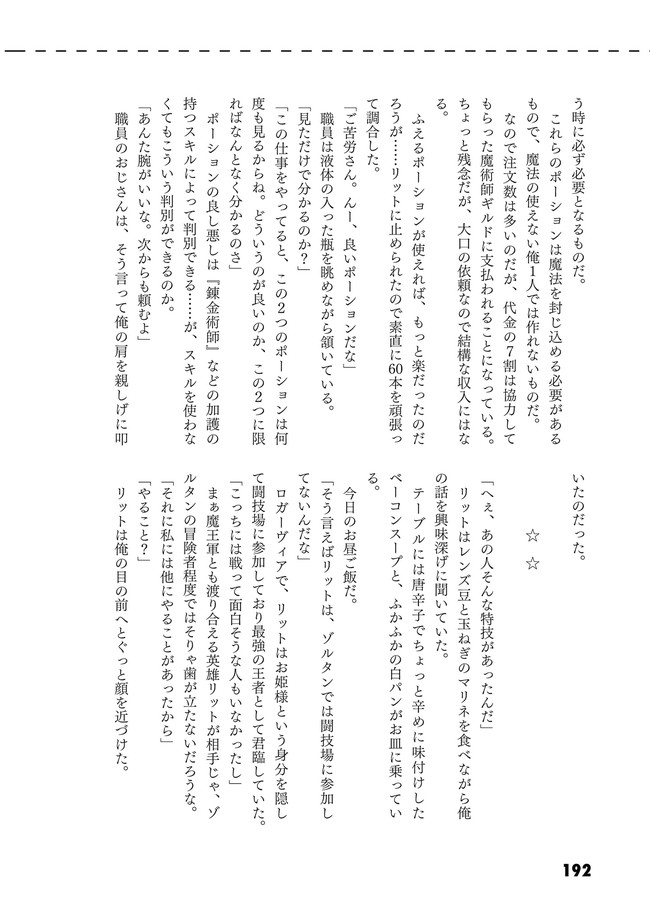 う時に必ず必要となるものだ。
これらのポーションは魔法を封じ込める必要がある
もので、魔法の使えない俺１人では作れないものだ。
なので注文数は多いのだが、代金の７割は協力して
もらった魔術師ギルドに支払われることになっている。
ちょっと残念だが、大口の依頼なので結構な収入にはな
る。
ふえるポーションが使えれば、もっと楽だったのだ
ろうが……リットに止められたので素直に60本を頑張っ
て調合した。
「ご苦労さん。んー、良いポーションだな」
職員は液体の入った瓶を眺めながら頷いている。
「見ただけで分かるのか？」
「この仕事をやってると、この２つのポーションは何
度も見るからね。どういうのが良いのか、この２つに限
ればなんとなく分かるのさ」
ポーションの良し悪しは『錬金術師』などの加護の
持つスキルによって判別できる……が、スキルを使わな
くてもこういう判別ができるのか。
「あんた腕がいいな。次からも頼むよ」
職員のおじさんは、そう言って俺の肩を親しげに叩
いたのだった。
☆　☆
「へぇ、あの人そんな特技があったんだ」
リットはレンズ豆と玉ねぎのマリネを食べながら俺
の話を興味深げに聞いていた。
テーブルには唐辛子でちょっと辛めに味付けした
ベーコンスープと、ふかふかの白パンがお皿に乗ってい
る。
今日のお昼ご飯だ。
「そう言えばリットは、ゾルタンでは闘技場に参加し
てないんだな」
ロガーヴィアで、リットはお姫様という身分を隠し
て闘技場に参加しており最強の王者として君臨していた。
「こっちには戦って面白そうな人もいなかったし」
まぁ魔王軍とも渡り合える英雄リットが相手じゃ、ゾ
ルタンの冒険者程度ではそりゃ歯が立たないだろうな。
「それに私には他にやることがあったから」
「やること？」
リットは俺の目の前へとぐっと顔を近づけた。
192